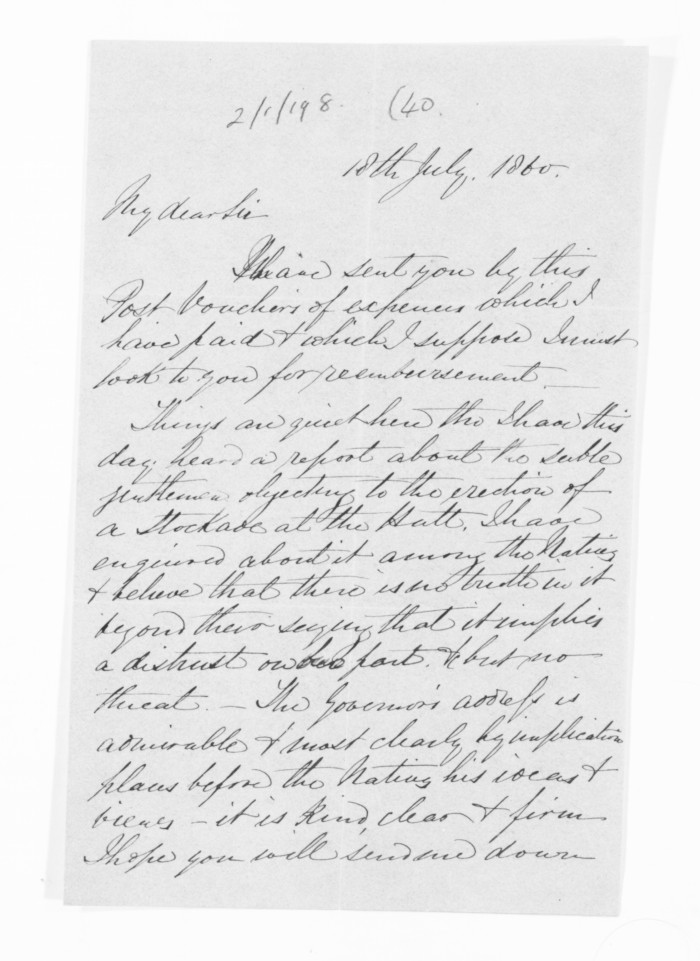 2/1/198. (40.
18th July. 1860.
My dear Sir
I have sent you by this
Post Vouchers of expences which I
have paid & which I suppose I must
look to you for reembursement —
Things are quiet here tho I have this
day heard a report about the sable
gentlemen objecting to the erection of
a Stockade at the Hutt. I have
enquired about it among the Natives
& believe that there is no truth in it
beyond their saying that it implies
a distrust on our part. & but no
threat. — The Governor's address is
admirable & most clearly by implication
places before the Natives his ideas &
views – it is Kind, clear & firm
I hope you will send me down